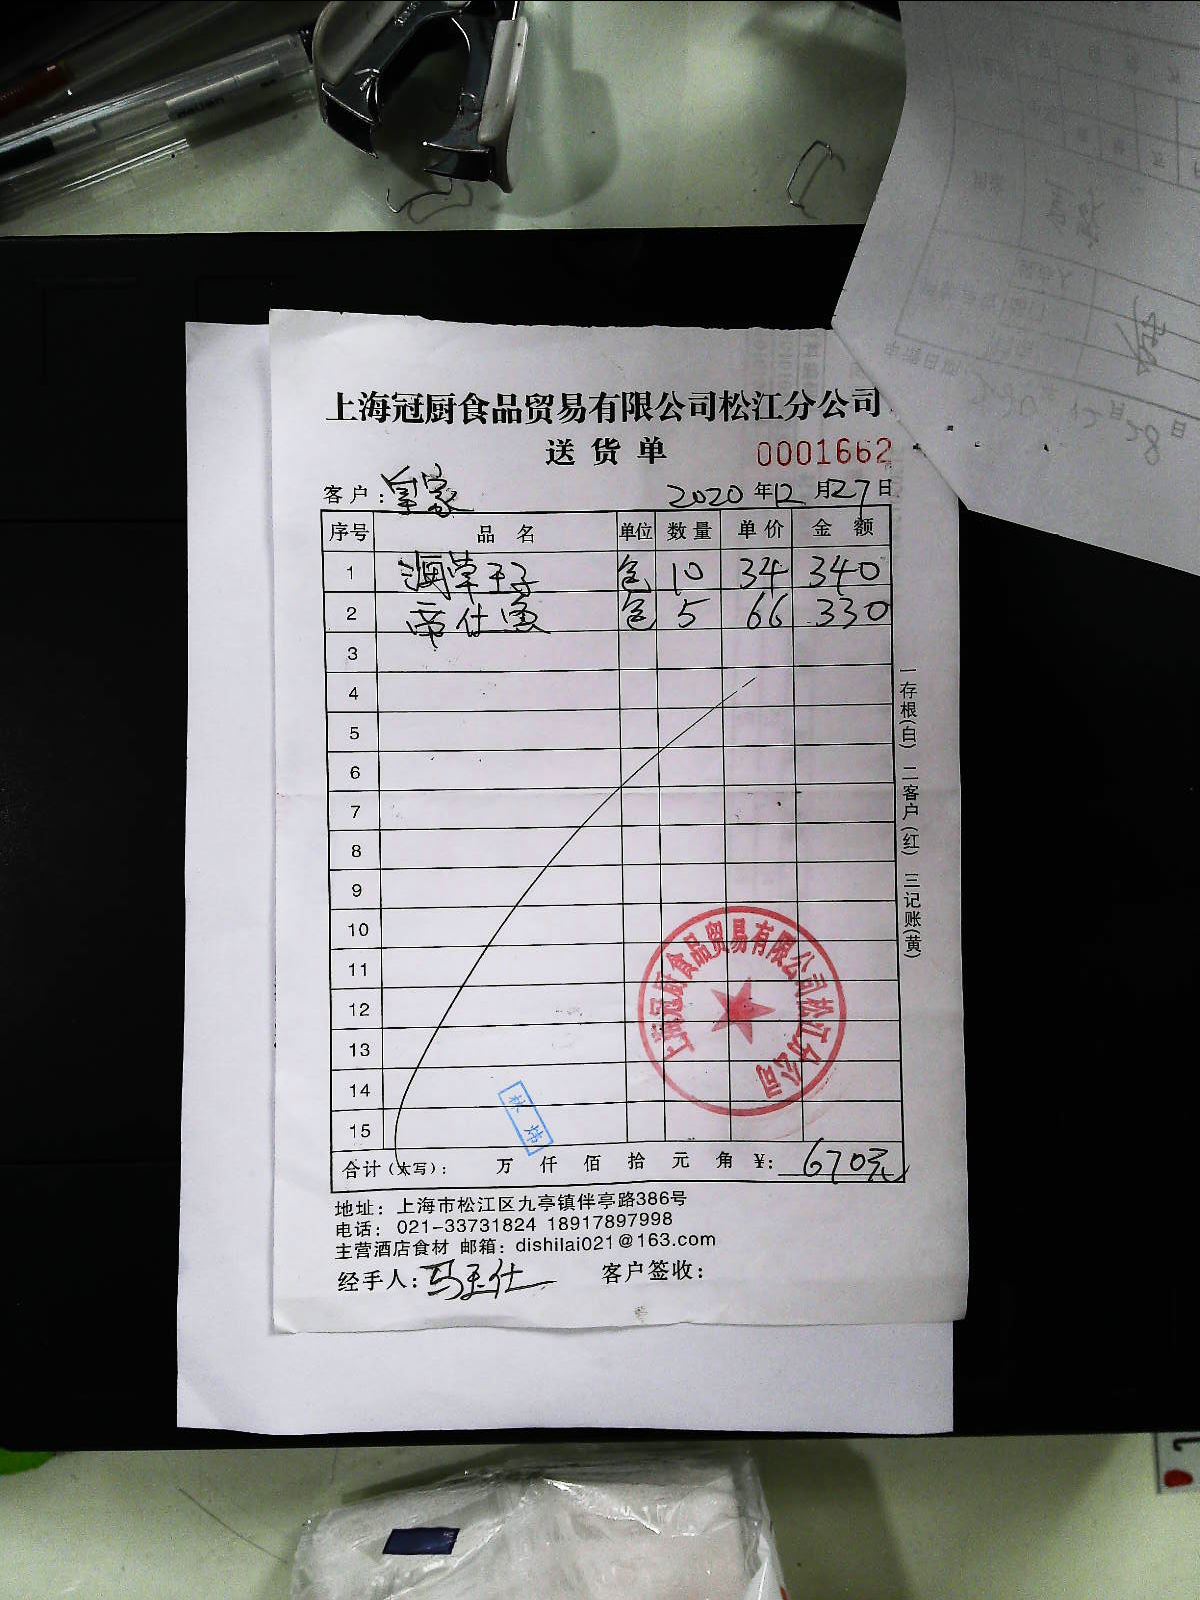 上海冠厨食品贸易有限公司松江分公司
送货单 0001662
客户: 皇家 2020年12月27日
序号 品名 单位 数量 单价 金额
1 澜草王子 包 10 34 340
2 帝仕鱼 包 5 66 330
3
4
5
6
7
8
9
10
11
12
13
14
15
合计(大写): 万 仟 佰 拾 元 角 ¥: 670元
地址: 上海市松江区九亭镇伴亭路386号
电话: 021-33731824 18917897998
主营酒店食材 邮箱: dishilai021@163.com
经手人: 马玉仕 客户签收:
一存根(白) 二客户(红) 三记账(黄)
上海冠厨食品贸易有限公司松江分公司